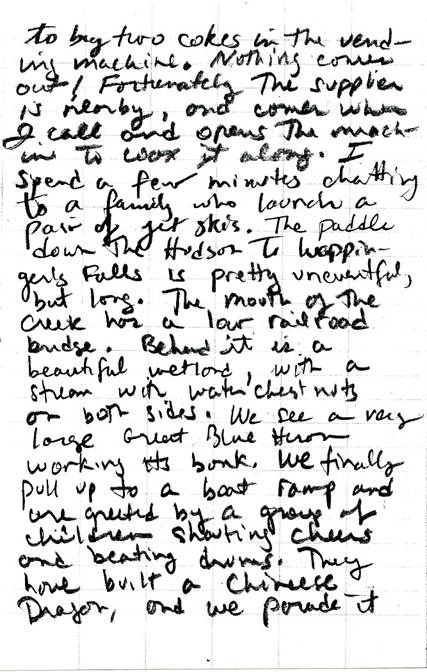 to buy two cokes in the vend-
ing machine. Nothing comes
out! Fortunately The supplier
is nearby, and comes when
I call and opens The mach-
ine To coax it along. I
spend a few minutes chatting
to a family who launch a
pair of jet skis. The paddle
down The Hudson To Wappin-
gers Falls is pretty uneventful,
but long. The mouth of The
Creek has a low railroad
bridge. Behind it is a
beautiful wetland, with a
stream with water chestnuts
on both sides. We see a very
large Great Blue Heron
working its bank. We finally
pull up to a boat ramp and
are greeted by a group of
children shouting cheers
and beating drums. They
have built a Chinese
Dragon, and we parade it